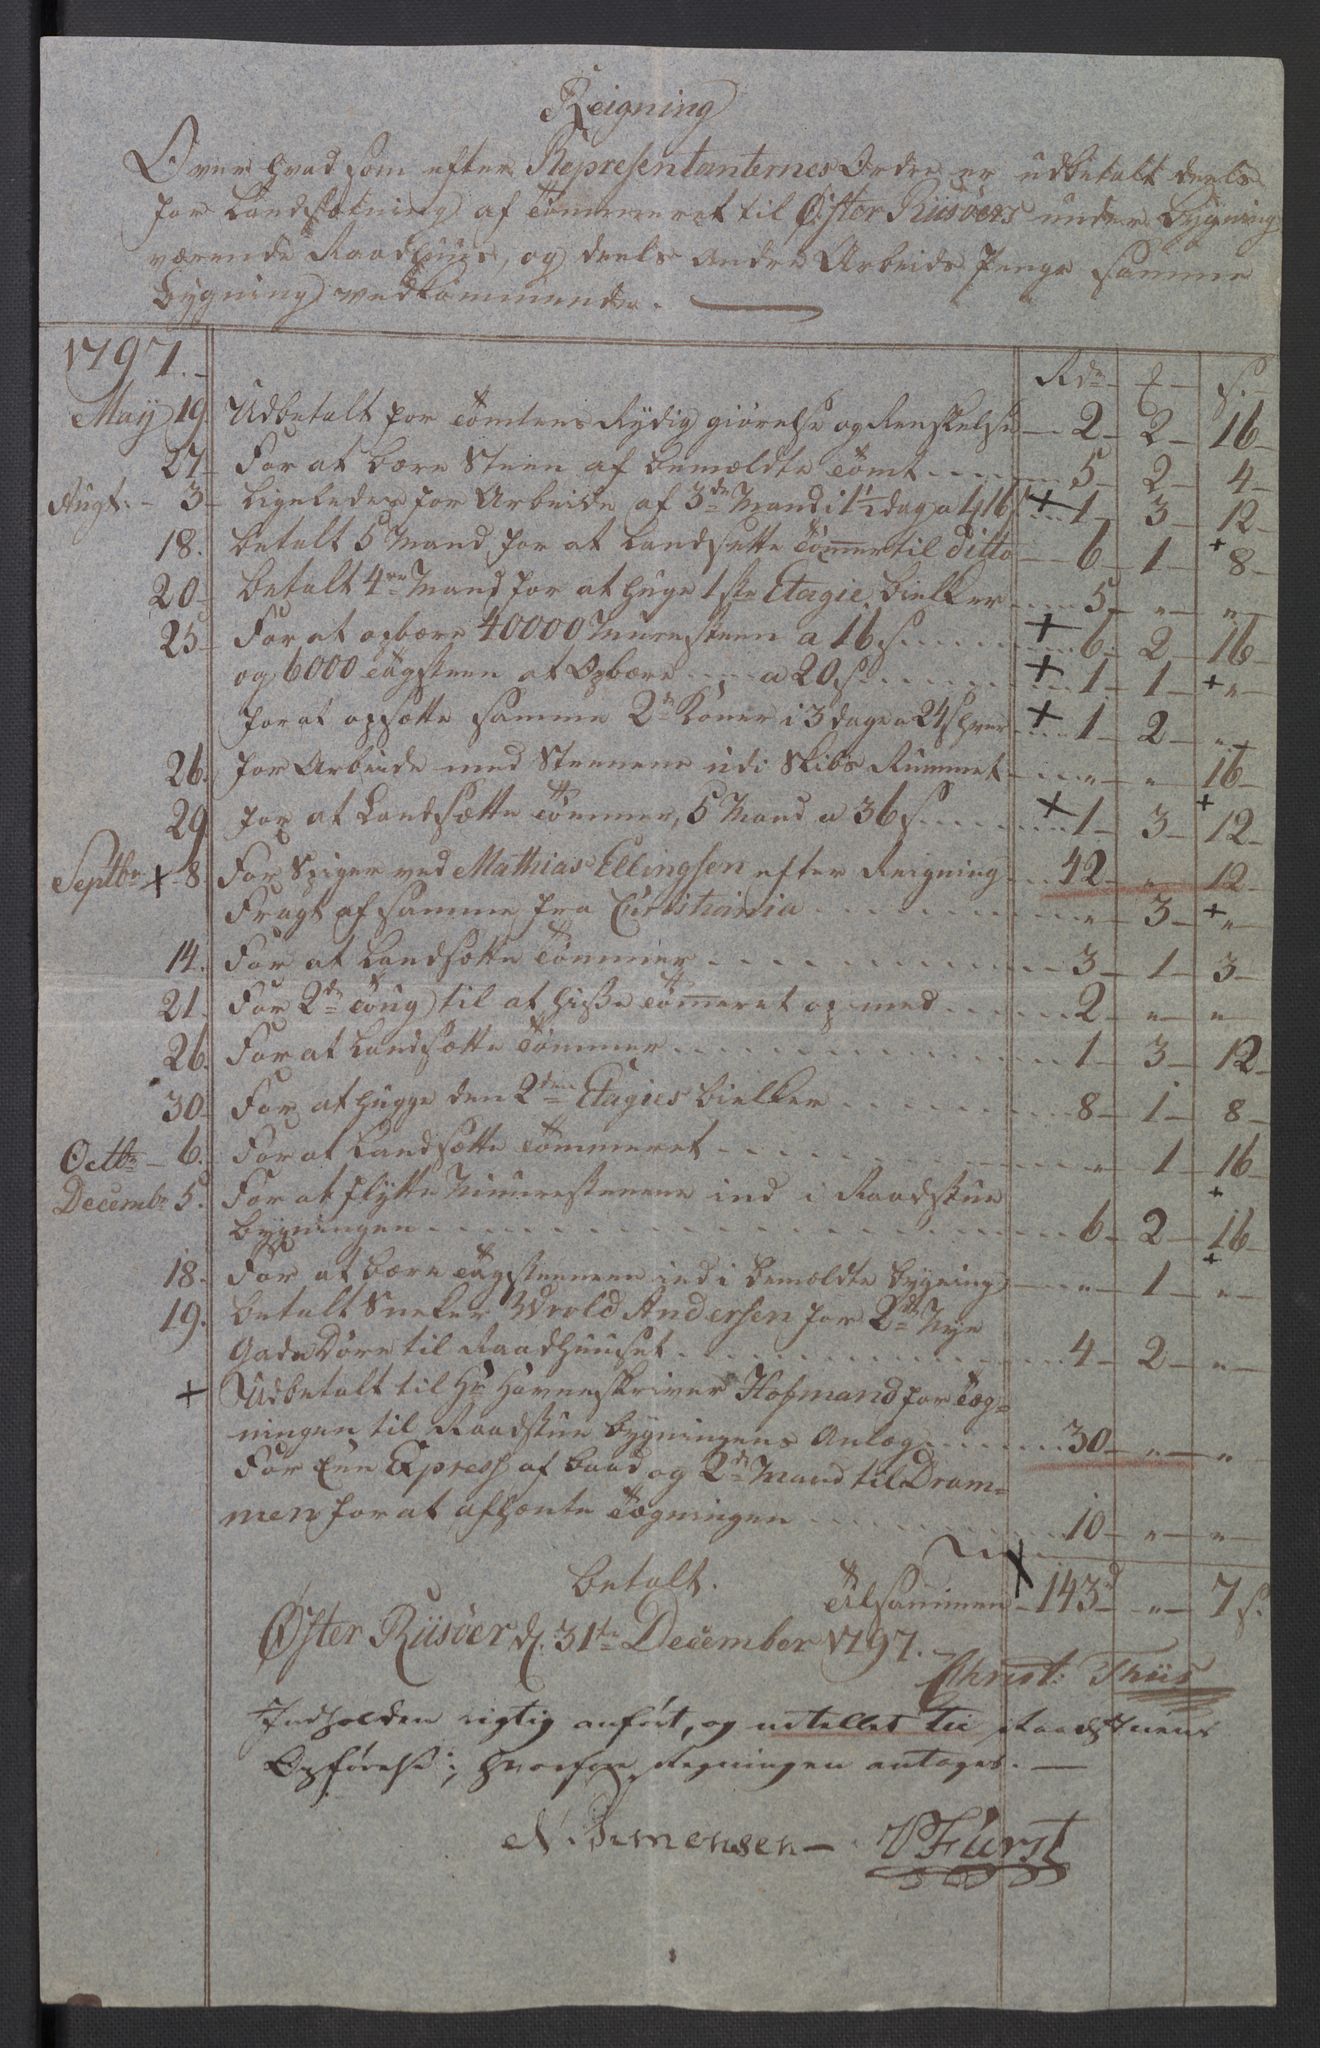 Reigning
Over hvad som efter Representanternes Ordre er udbetalt deels
for Landsætning af Tømmeret til Øster Riisöers under bygning
værende Raadhuus, og deels andre Arbeids Penge samme
bygning vedkommende.
1797. Rdr ₰ s.
May 19 Udbetalt for Tomtens Rydig giörelse og Renskelse 2 2 16
27 For at bære Steen af bemældte Tomt 5 2 4
Augt: 3 ligeledes for Arbeide af 3de Mand i 1½ dag a 4 16 1 3 12
18. betalt 5 Mand for at Landsette Tömmer til ditto 6 1 8
20 betalt 4re Mand for at huge 1ste Etagie bielker 5 " "
25 For at opbære 40000 Muursteen a 16 s 6 2 16
og 6000 Tagsteen at Opbære a 20 s 1 1 "
for at opsætte samme 2de Koner i 3 dage a 24 s hver 1 2 "
26. for Arbeide med Steenene udi Skibs Rummet " " 16
29 for at Landsætte Tömmer, 5 Mand a 36 s 1 3 12
Septbr 8 For Spiger ved Mathias Ellingsen efter Reigning 42 " 12
Fragt af samme fra Christiania " 3 "
14. For at Landsætte Tömmer 3 1 3
21. For 2de Toug til at hisse Tömmeret op med 2 " "
26. For at Landsætte Tömmer 1 3 12
30 For at hugge den 2den Etagies bielker 8 1 8
Octbr 6. For at Landsætte Tömmeret " 1 16
Decembr 5. For at flytte Muurestenene ind i Raadstue
bygningen 6 2 16
18. For at bære Tagsteenene ind i bemældte bygning " 1 "
19. betalt Sneker Wrold Andersen for 2de Nye
Gade Döre til Raadhuuset 4 2 "
Udbetalt til Hr Havneskriver Hofmand for Teg=
ningen til Raadstue bygningens Anlæg 30 " "
For Een Express af baad og 2de Mand til Dram=
men for at afhænte Tegningen 10 " "
betalt. Tilsammen 143d " 7 s.
Öster Riisöer d. 31te December 1797.
Christ: Thiis
Indholden rigtig anfört, og til Raadstuens
Opförelse; hvorfor Regningen antages.
N. Simonsen VFürst